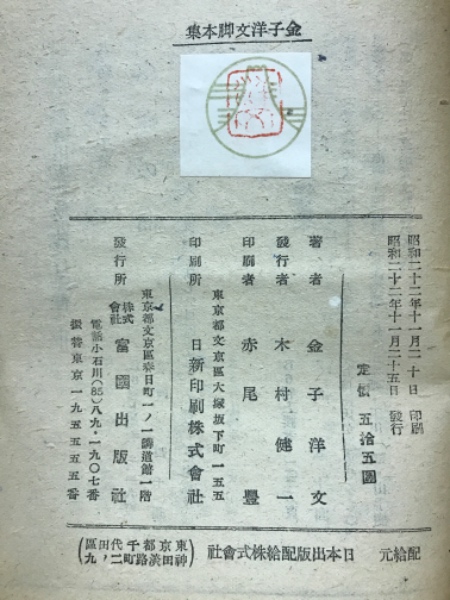 金子洋文脚本集
昭和二十二年十一月二十日 印刷
昭和二十二年十一月二十五日 發行
定價 五拾五圓
著者 金子洋文
發行者 木村健一
印刷者 赤尾豐
東京都文京區大塚坂下町一五五
印刷所 日新印刷株式會社
東京都文京區春日町一ノ一講道館一階
發行所 株式會社 富國出版社
電話小石川(85)八九・一九〇七番
振替東京一九五五五五番
配給元 日本出版配給株式會社
(東京都千代田區神田淡路町二ノ九)